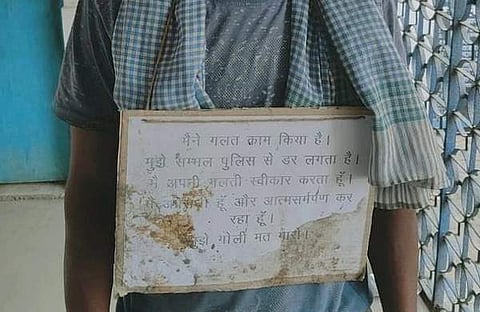 मैंने गलत काम किया है।
मुझे सम्भल पुलिस से डर लगता है।
मै अपनी गलती स्वीकार करता हूँ।
हूँ और आत्मसमर्पण कर
रहा हूँ।
मुझे गोली मत मारो।